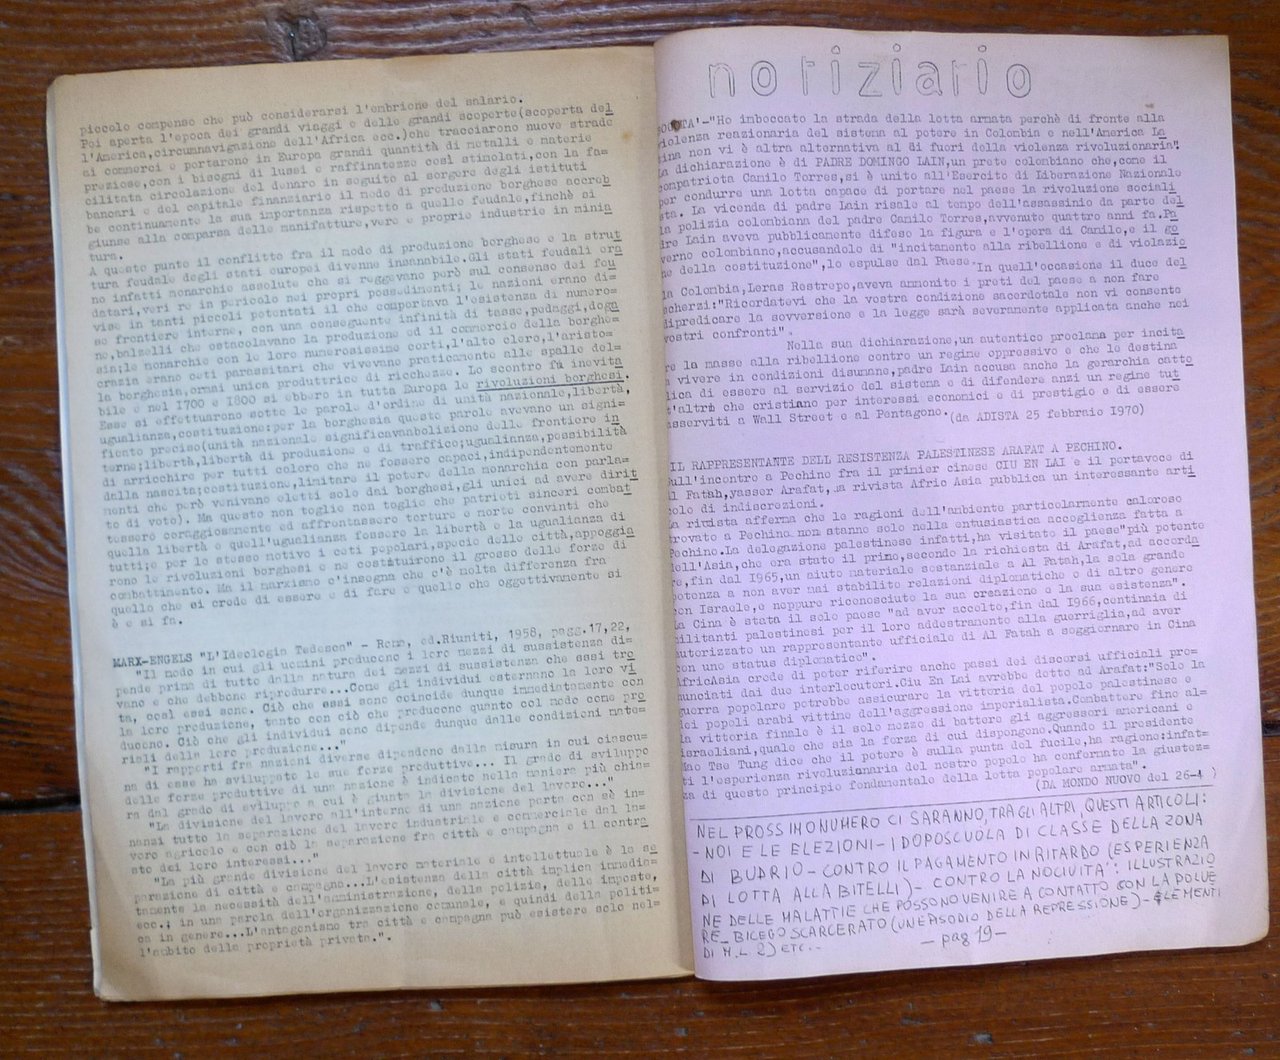 piccolo compenso che può considerarsi l'embrione del salario.
Poi aperta l'epoca dei grandi viaggi e delle grandi scoperte(scoperta del
l'America,circumnavigazione dell'Africa ecc.)che tracciarono nuove strade
ai commerci e portarono in Europa grandi quantità di metalli e materie
preziose,con i bisogni di lussi e raffinatezze così stimolati,con la fa=
cilitata circolazione del denaro in seguito al sorgere degli istituti
bancari e del capitale finanziario il modo di produzione borghese accreb
be continuamente la sua importanza rispetto a quello feudale,finchè si
giunse alla comparsa delle manifatture,vere e proprie industrie in minia
tura.
A questo punto il conflitto fra il modo di produzione borghese e la strut
tura feudale degli stati europei divenne insanabile.Gli stati feudali era
no infatti monarchie assolute che si reggevano però sul consenso dei feu
datari,veri re in pericolo nei propri possedimenti; le nazioni erano di=
vise in tanti piccoli potentati il che comportava l'esistenza di numero=
se frontiere interne, con una conseguente infinità di tasse,pedaggi,doga
ne,balzelli che ostacolavano la produzione ed il commercio della borghe=
sia;le monarchie con le loro numerosissime corti,l'alto clero,l'aristo=
crazia erano ceti parassitari che vivevano praticamente alle spalle del=
la borghesia,ormai unica produttrice di ricchezze. Lo scontro fù inevita
bile e nel I700 e I800 si ebbero in tutta Europa le rivoluzioni borghesi.
Esse si effettuarono sotto le parole d'ordine di unità nazionale,libertà,
uguaglianza,costituzione:per la borghesia queste parole avevano un signi=
ficato preciso(unità nazionale significavanbolizione delle frontiere in
terne;libertà,libertà di produzione e di traffico;uguaglianza,possibilità
di arricchire per tutti coloro che ne fossero capaci,indipendentemente
dalla nascita;costituzione,limitare il potere della monarchia con parla=
menti che però venivano eletti solo dai borghesi,gli unici ad avere dirit
to di voto). Ma questo non toglie non toglie che patrioti sinceri combat
tessero coraggiosamente ed affrontassero torture e morte convinti che
quella libertà e quell'uguaglianza fossero la libertà e la ugualianza di
tutti;e per lo stesso motivo i ceti popolari,specie delle città,appoggia
rono le rivoluzioni borghesi e ne costituirono il grosso delle forze di
combattimento. Ma il marxismo c'insegna che c'è molta differenza fra
quello che si crede di essere e di fare e quello che oggettivamente si
è e si fa.
MARX-ENGELS "L'Ideologia Tedesca" - Roma, ed.Riuniti, 1958, pagg.17,22,
"Il modo in cui gli uomini producono i loro mezzi di sussistenza di=
pende prima di tutto dalla natura dei mezzi di sussistenza che essi tro
vano e che debbono riprodurre...Come gli individui esternano la loro vi
ta, così essi sono. Ciò che essi sono coincide dunque immediatamente con
la loro produzione, tanto con ciò che producono quanto col modo come pro
ducono. Ciò che gli individui sono dipende dunque dalle condizioni mate=
riali della loro produzione..."
"I rapporti fra nazioni diverse dipendono dalla misura in cui ciascu=
na di esse ha sviluppato le sue forze produttive... Il grado di sviluppo
delle forze produttive di una nazione è indicato nella maniera più chia=
ra dal grado di sviluppo a cui è giunta la divisione del lavoro..."
"La divisione del lavoro all'interno di una nazione porta con sè in=
nanzi tutto la separazione del lavoro industriale e commerciale dal la=
voro agricolo e con ciò la separazione fra città e campagna e il contra
sto dei loro interessi..."
"La più grande divisione del lavoro materiale e intellettuale è la se
parazione di città e campagna...L'esistenza della città implica immedia=
tamente la necessità dell'amministrazione, della polizia, delle imposte,
ecc.; in una parola dell'organizzazione comunale, e quindi della politi=
ca in genere...L'antagonismo tra città e campagna può esistere solo nel=
l'ambito della proprietà privata.".
notiziario
"Ho imboccato la strada della lotta armata perchè di fronte alla
violenza reazionaria del sistema al potere in Colombia e nell'America La
tina non vi è altra alternativa al di fuori della violenza rivoluzionaria".
La dichiarazione è di PADRE DOMINGO LAIN,un prete colombiano che,come il
compatriota Camilo Torres,si è unito all'Esercito di Liberazione Nazionale
per condurre una lotta capace di portare nel paese la rivoluzione sociali
sta. La vicenda di padre Lain risale al tempo dell'assassinio da parte del
la polizia colombiana del padre Camilo Torres,avvenuto quattro anni fa.Pa
dre Lain aveva pubblicamente difeso la figura e l'opera di Camilo,e il go
verno colombiano,accusandolo di "incitamento alla ribellione e di violazio
ne della costituzione",lo espulse dal Paese.
In quell'occasione il duce del
la Colombia,Leras Restrepo,aveva ammonito i preti del paese a non fare
scherzi:"Ricordatevi che la vostra condizione sacerdotale non vi consente
dipredicare la sovversione e la legge sarà severamente applicata anche nei
vostri confronti".
Nella sua dichiarazione,un autentico proclama per incita
re la masse alla ribellione contro un regime oppressivo e che le destina
a vivere in condizioni disumane,padre Lain accusa anche la gerarchia catto
lica di essere al servizio del sistema e di difendere anzi un regime tut
t'altro che cristiano per interessi economici e di prestigio e di essere
asserviti a Wall Street e al Pentagono.(da ADISTA 25 febbraio 1970)
IL RAPPRESENTANTE DELL RESISTENZA PALESTINESE ARAFAT A PECHINO.
Sull'incontro a Pechino fra il primier cinese CIU EN LAI e il portavoce di
Al Fatah,yasser Arafat,la rivista Afric Asia pubblica un interessante arti
colo di indiscrezioni.
La rivista afferma che le ragioni dell'ambiente particolarmente caloroso
trovato a Pechino non stanno solo nella entusiastica accoglienza fatta a
Pechino.La delegazione palestinese infatti,ha visitato il paese"più potente
dell'Asia,che era stato il primo,secondo la richiesta di Arafat,ad accorda
re,fin dal I965,un aiuto materiale sostanziale a Al Fatah,la sola grande
potenza a non aver mai stabilito relazioni diplomatiche o di altro genere
con Israele,e neppure riconosciuto la sua creazione e la sua esistenza".
La Cina è stata il solo paese "ad aver accolto,fin dal I966,centinaia di
militanti palestinesi per il loro addestramento alla guerriglia,ad aver
autorizzato un rappresentante ufficiale di Al Fatah a soggiornare in Cina
con uno status diplomatico".
AfricAsia crede di poter riferire anche passi dei discorsi ufficiali pro=
nunciati dai due interlocutori.Ciu En Lai avrebbe detto ad Arafat:"Solo la
guerra popolare potrebbe assicurare la vittoria del popolo palestinese e
dei popoli arabi vittime dell'aggressione imperialista.Combattere fino al=
la vittoria finale è il solo mezzo di battere gli aggressori americani e
israeliani,quale che sia la forza di cui dispongono.Quando il presidente
Mao Tse Tung dice che il potere è sulla punta del fucile,ha ragione:infat=
ti l'esperienza rivoluzionaria del nostro popolo ha confermato la giustez=
za di questo principio fondamentale della lotta popolare armata".
(DA MONDO NUOVO del 26-4 )
NEL PROSSIMO NUMERO CI SARANNO,TRA GLI ALTRI, QUESTI ARTICOLI:
- NOI E LE ELEZIONI - I DOPOSCUOLA DI CLASSE DELLA ZONA
DI BUDRIO - CONTRO IL PAGAMENTO IN RITARDO (ESPERIENZA
DI LOTTA ALLA BITELLI) - CONTRO LA NOCIVITA': ILLUSTRAZIO
NE DELLE MALATTIE CHE POSSONO VENIRE A CONTATTO CON LA POLVE
RE - BICEGO SCARCERATO (UN EPISODIO DELLA REPRESSIONE) - ELEMENTI
DI M.L 2) ETC...
- pag 19 -